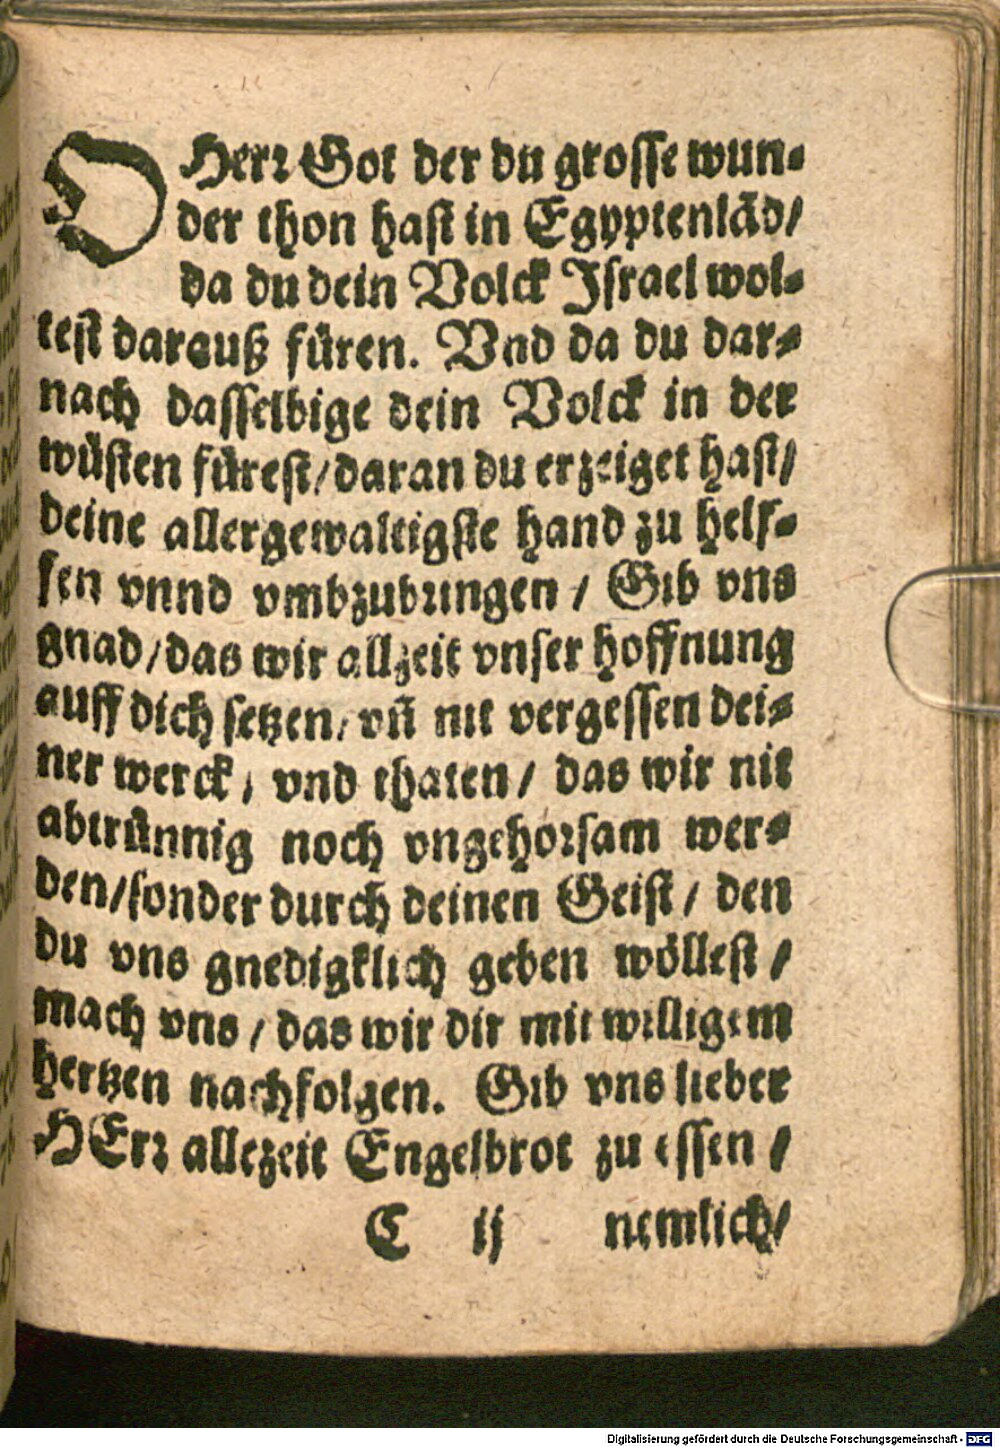 O Herr Got der du grosse wun-
der thon hast in Egyptenlād/
da du dein Volck Israel wol-
test darauß füren. Vnd da du dar-
nach dasselbige dein Volck in der
wüsten fürest/ daran du erzeiget hast/
deine allergewaltigste hand zu helf-
fen vnnd vmbzubringen / Gib vns
gnad/ das wir allzeit vnser hoffnung
auff dich setzen/ vñ nit vergessen dei-
ner werck/ vnd thaten/ das wir nit
abtrünnig noch vngehorsam wer-
den/ sonder durch deinen Geist/ den
du vns gnedigklich geben wöllest/
mach vns / das wir dir mit willigem
hertzen nachfolgen. Gib vns lieber
HErr allezeit Engelbrot zu essen /
C ij nemlich/
Digitalisierung gefördert durch die Deutsche Forschungsgemeinschaft - DFG